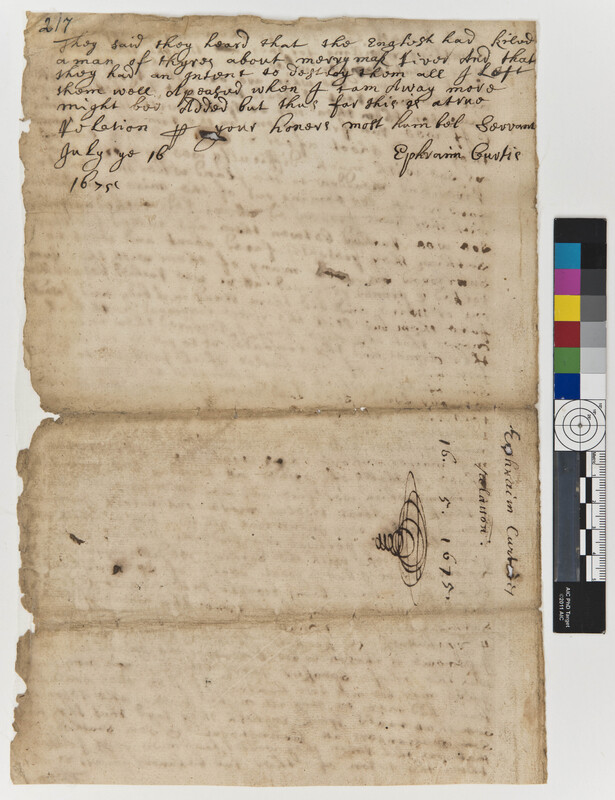 217
They said they heard that the English had kiled
a man of thyres about merrymak River And that
they had an Intent to destroy them all I Left
them well Apeased when I Cam Away more
might bee Added but thus far this is a true
Relation your honers most humbel Servant
July ye 16 Ephraim Curtis
1675
Ephraim Curtis
relation.
16. 5. 1675.
AIC PhD Target
©2011 AIC